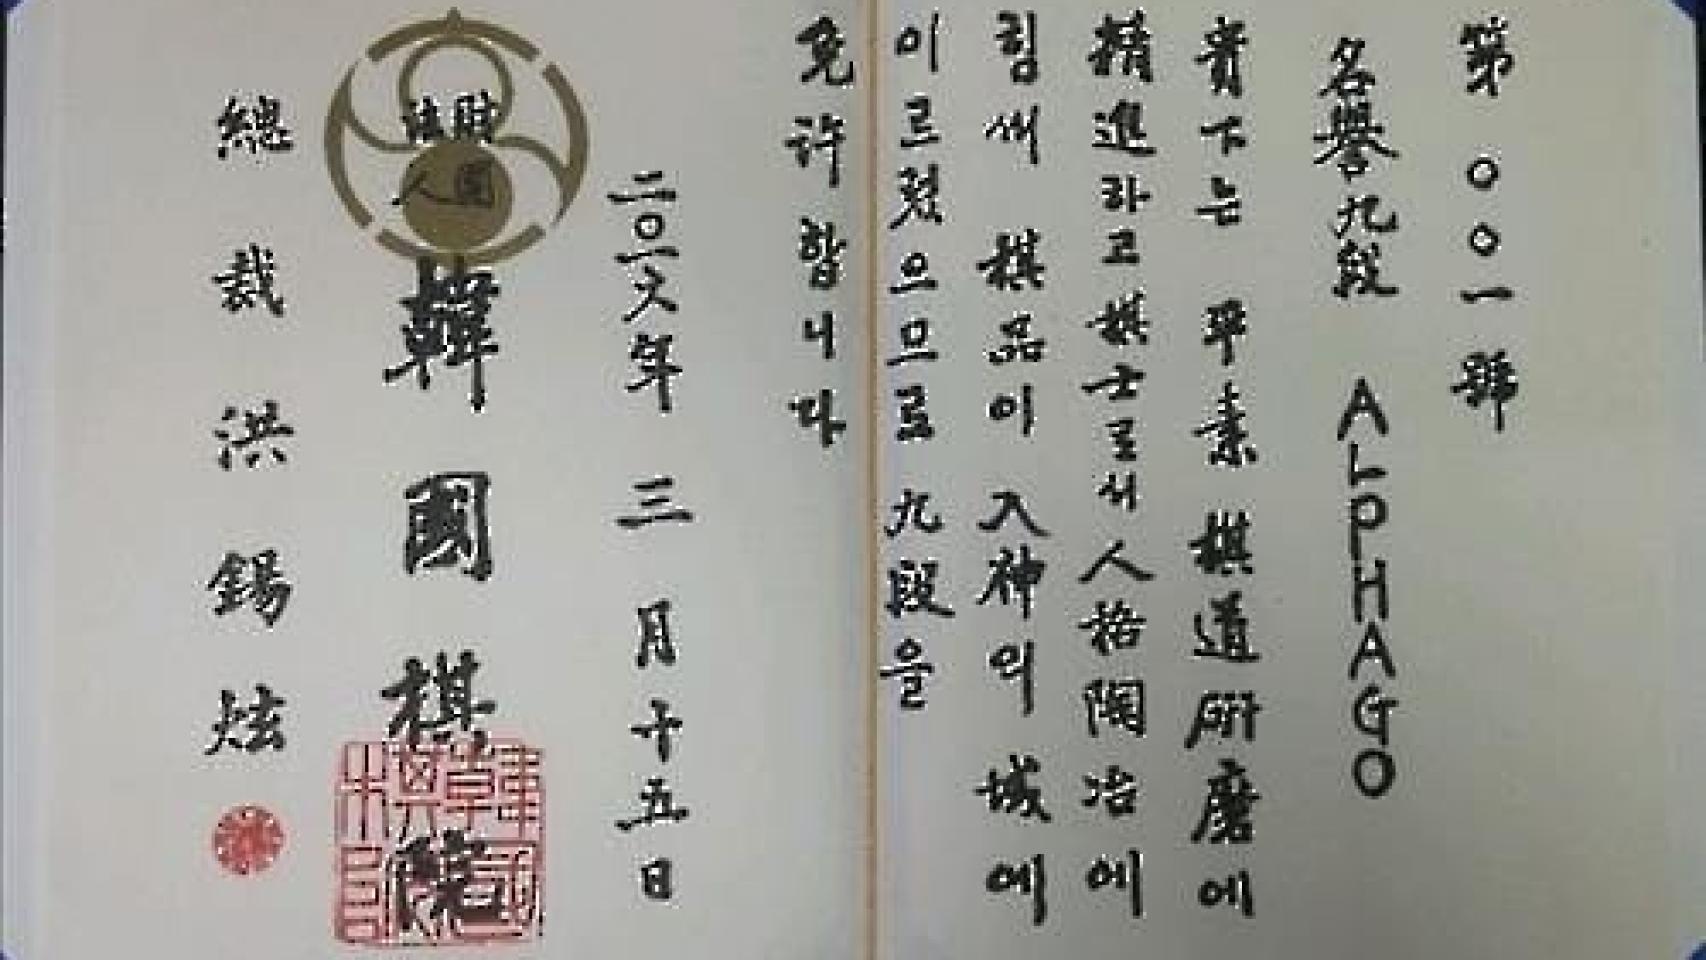 第〇〇一號
名譽九段 ALPHAGO
貴下는 平素 棋道 硏磨에
精進하고 棋士로서 人格陶冶에
힘써 棋品이 入神의 域에
이르렀으므로 九段을
免許합니다
二〇一六年 三月十五日
財團
法人
韓國棋院
總裁 洪錫炫